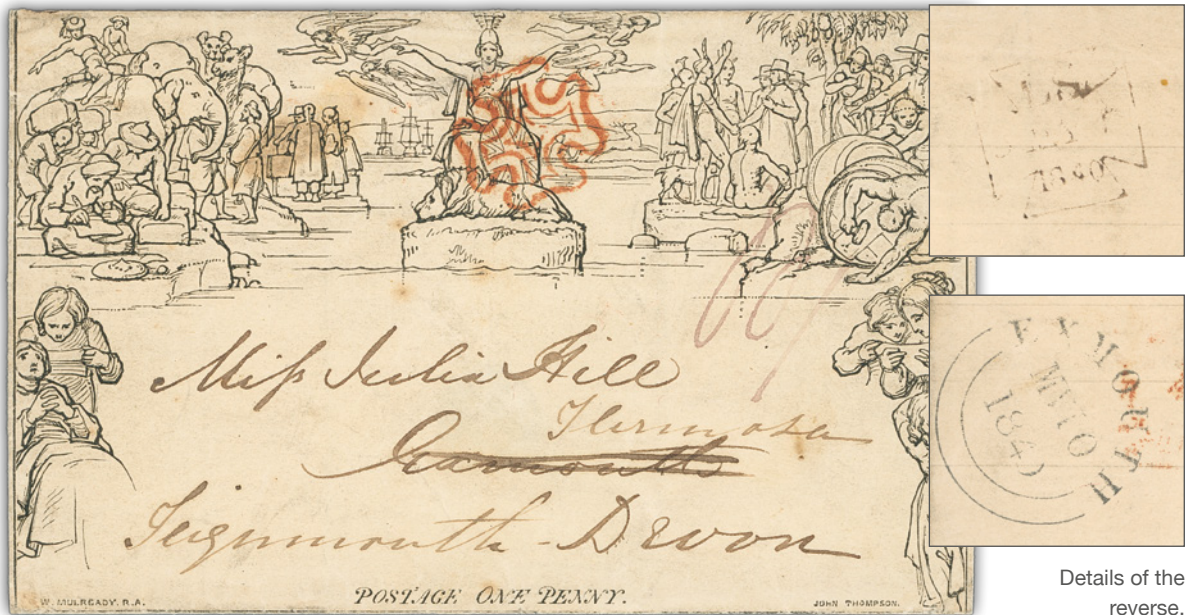 Miss Julia Hill
Hermosa
Teignmouth - Devon
W. MULREADY. R.A.
POSTAGE ONE PENNY.
JOHN THOMPSON.
MY 10
1840
Details of the
reverse.